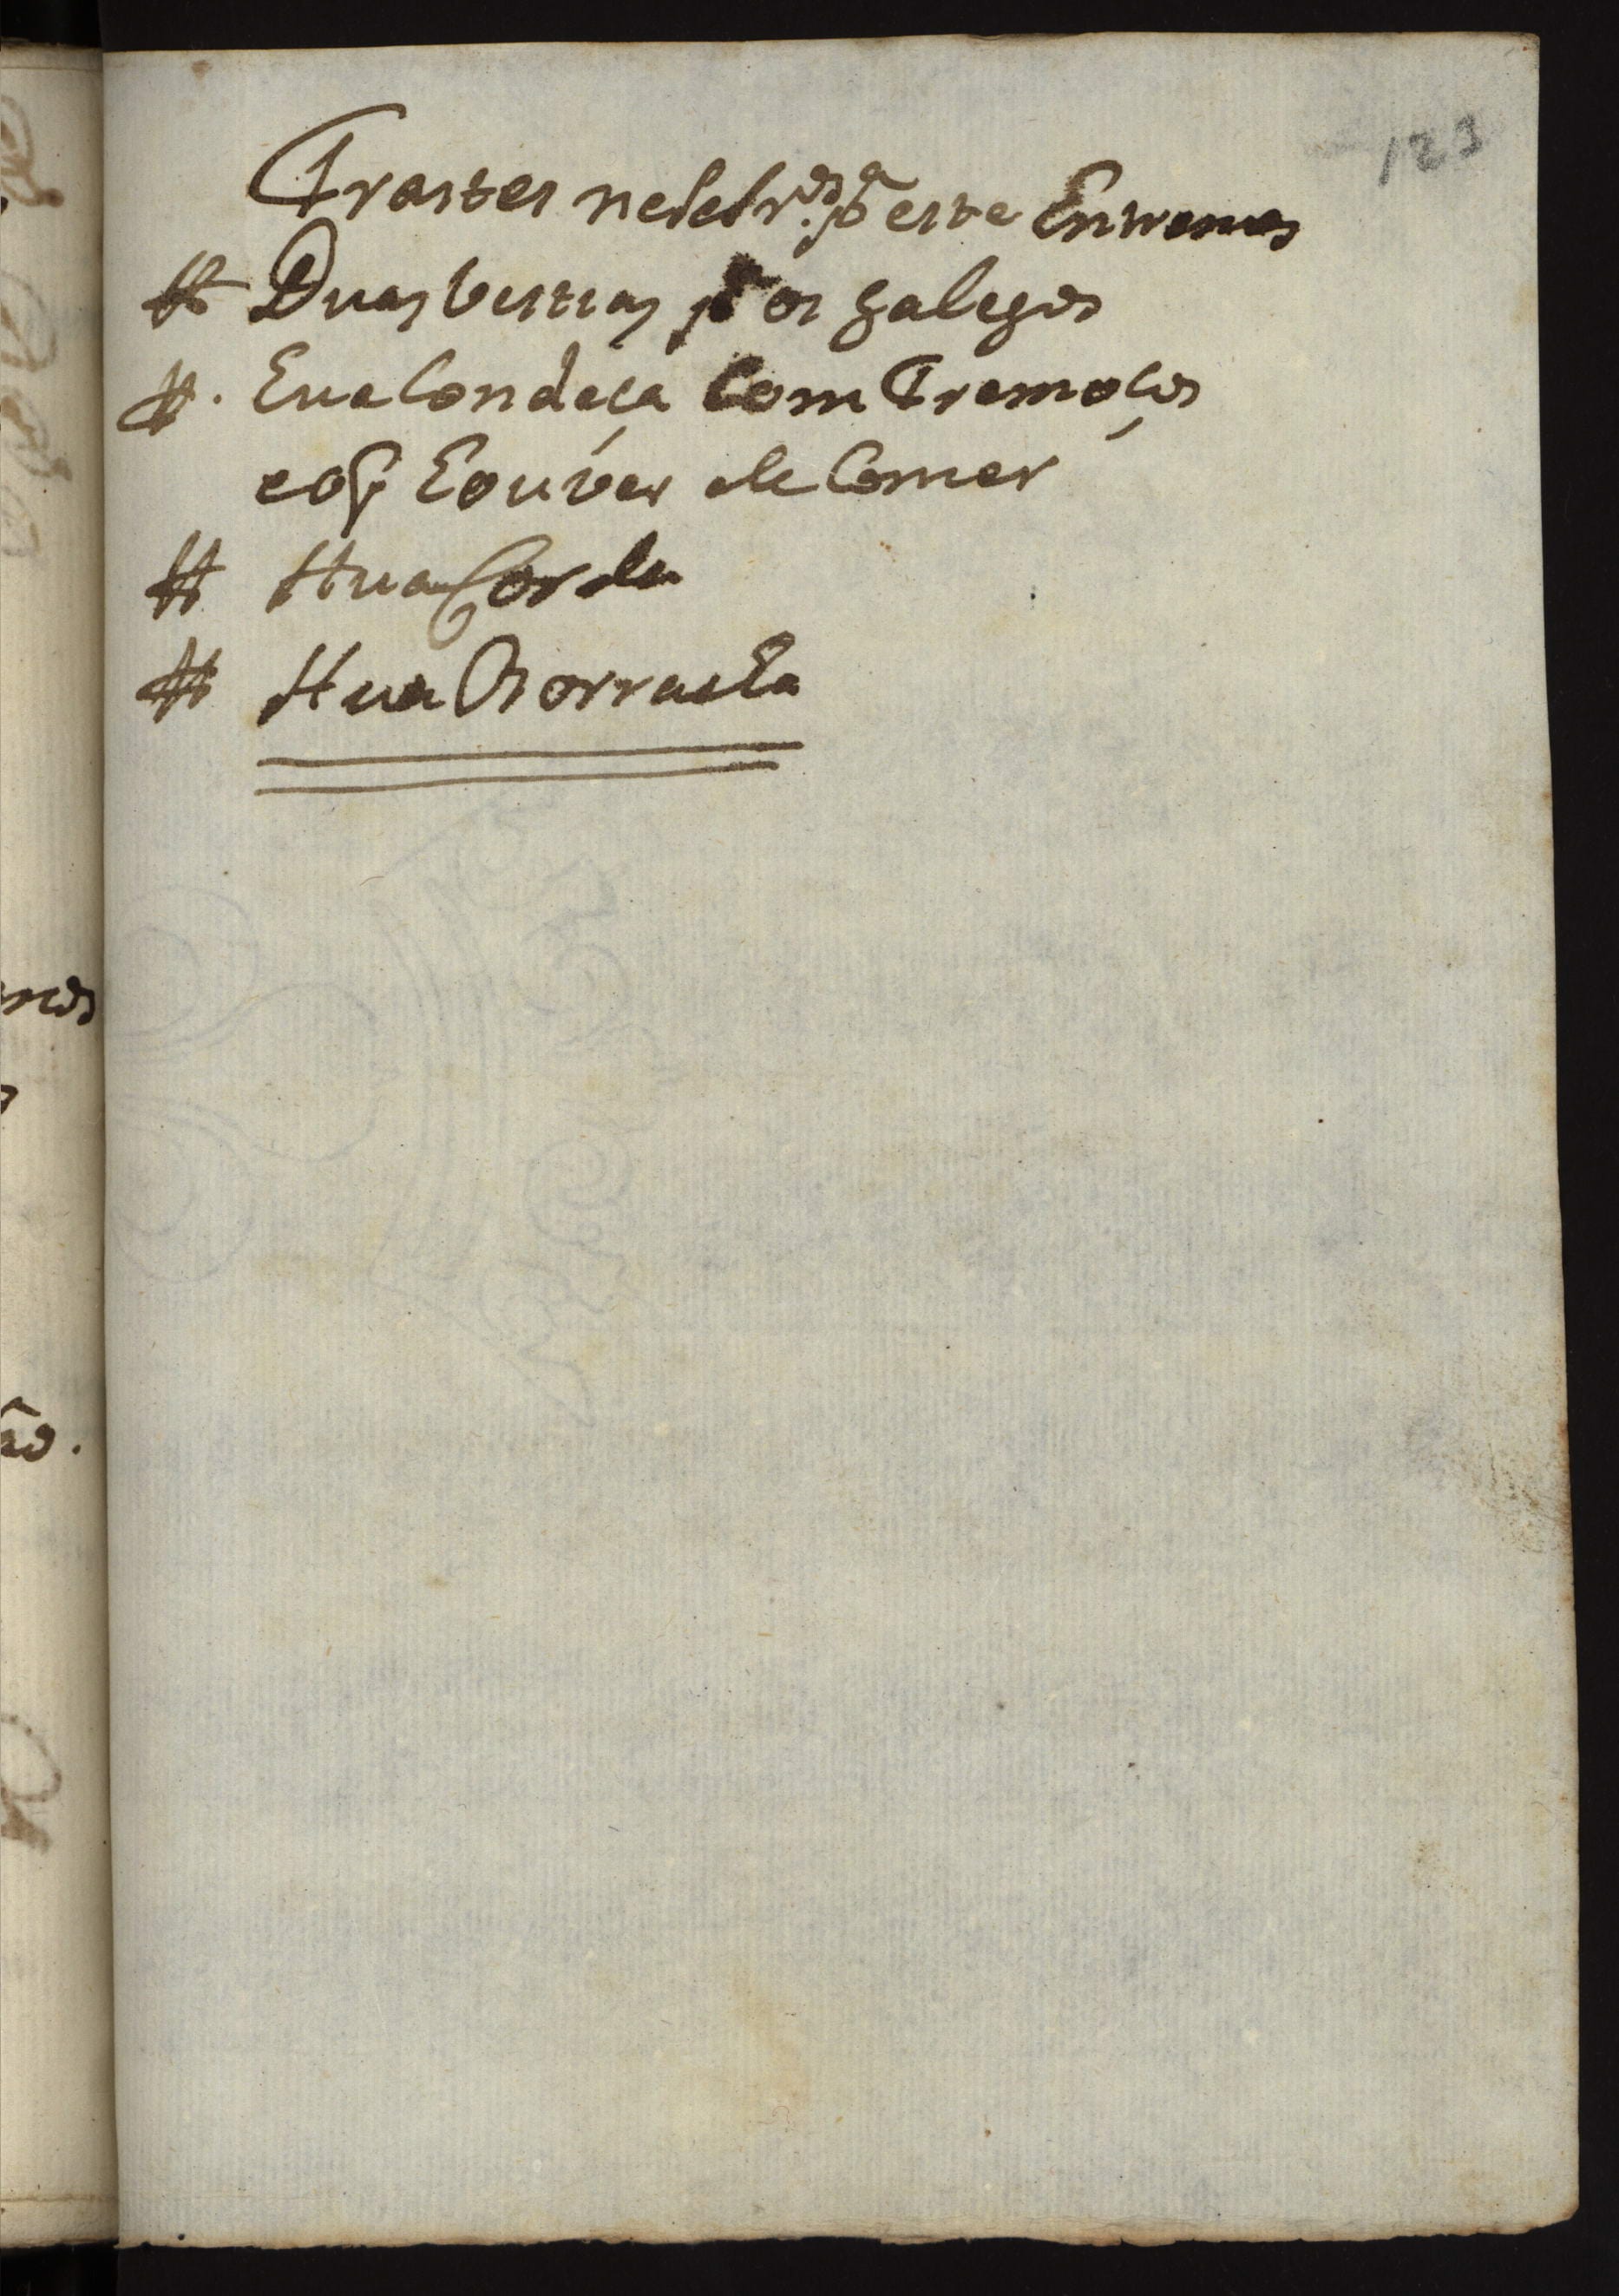 123
Trastes neseçr.ºs pª este Entremes
# Duas bestias pª os galegos
#. hua Condeça Com Tremoços
e o q̃ houver de Comer
# Hua Corda
# Hua Borracha